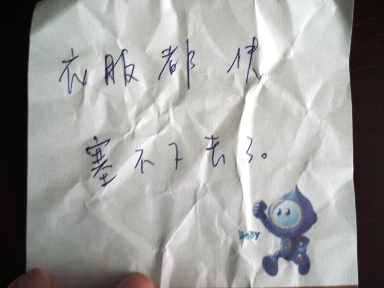 衣服都快
塞不下去了。
BaBY